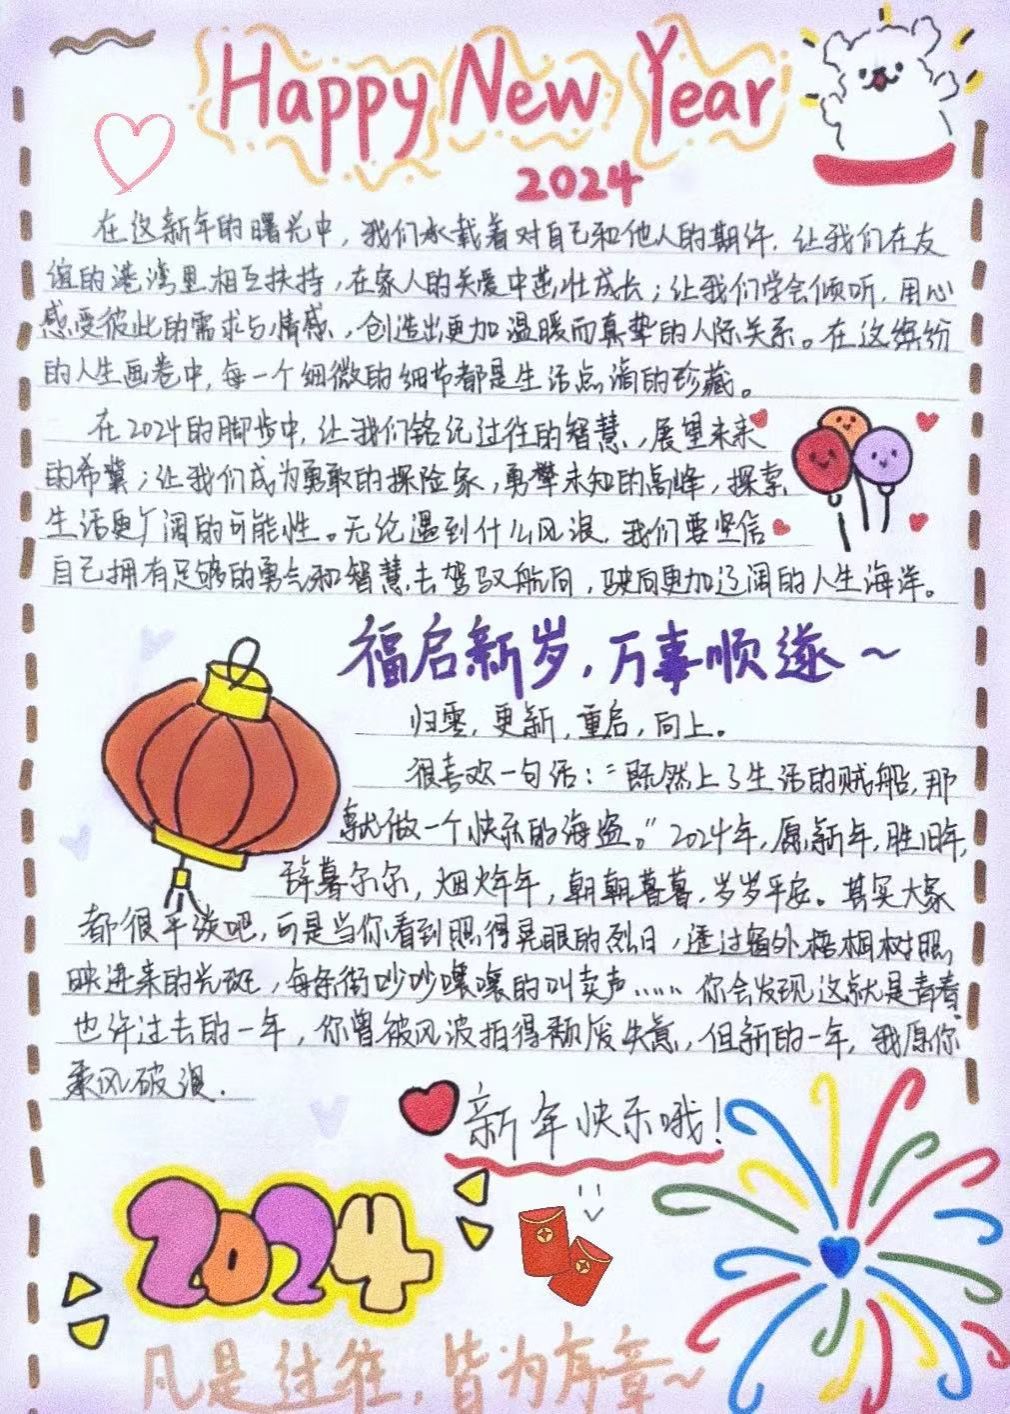 Happy New Year
2024
在这新年的曙光中，我们承载着对自己和他人的期许，让我们在友
谊的港湾里相互扶持，在家人的关爱中茁壮成长；让我们学会倾听，用心
感受彼此的需求与情感，创造出更加温暖而真挚的人际关系。在这缤纷
的人生画卷中，每一个细微的细节都是生活点滴的珍藏。
在2024的脚步中，让我们铭记过往的智慧，展望未来
的希冀；让我们成为勇敢的探险家，勇攀未知的高峰，探索
生活更广阔的可能性。无论遇到什么风浪，我们要坚信
自己拥有足够的勇气和智慧去驾驭航向，驶向更加辽阔的人生海洋。
福启新岁，万事顺遂~
归零，更新，重启，向上。
很喜欢一句话：“既然上了生活的贼船，那
就做一个快乐的海盗。”2024年，愿新年，胜旧年，
辞暮尔尔，烟火年年，朝朝暮暮，岁岁平安。其实大家
都很平淡吧，可是当你看到照得晃眼的烈日，透过窗外梧桐树照
映进来的光斑，每条街吵吵嚷嚷的叫卖声……你会发现这就是青春。
也许过去的一年，你曾被风波拍得颓废失意，但新的一年，我愿你
乘风破浪.
新年快乐哦！
2024
凡是过往，皆为序章~